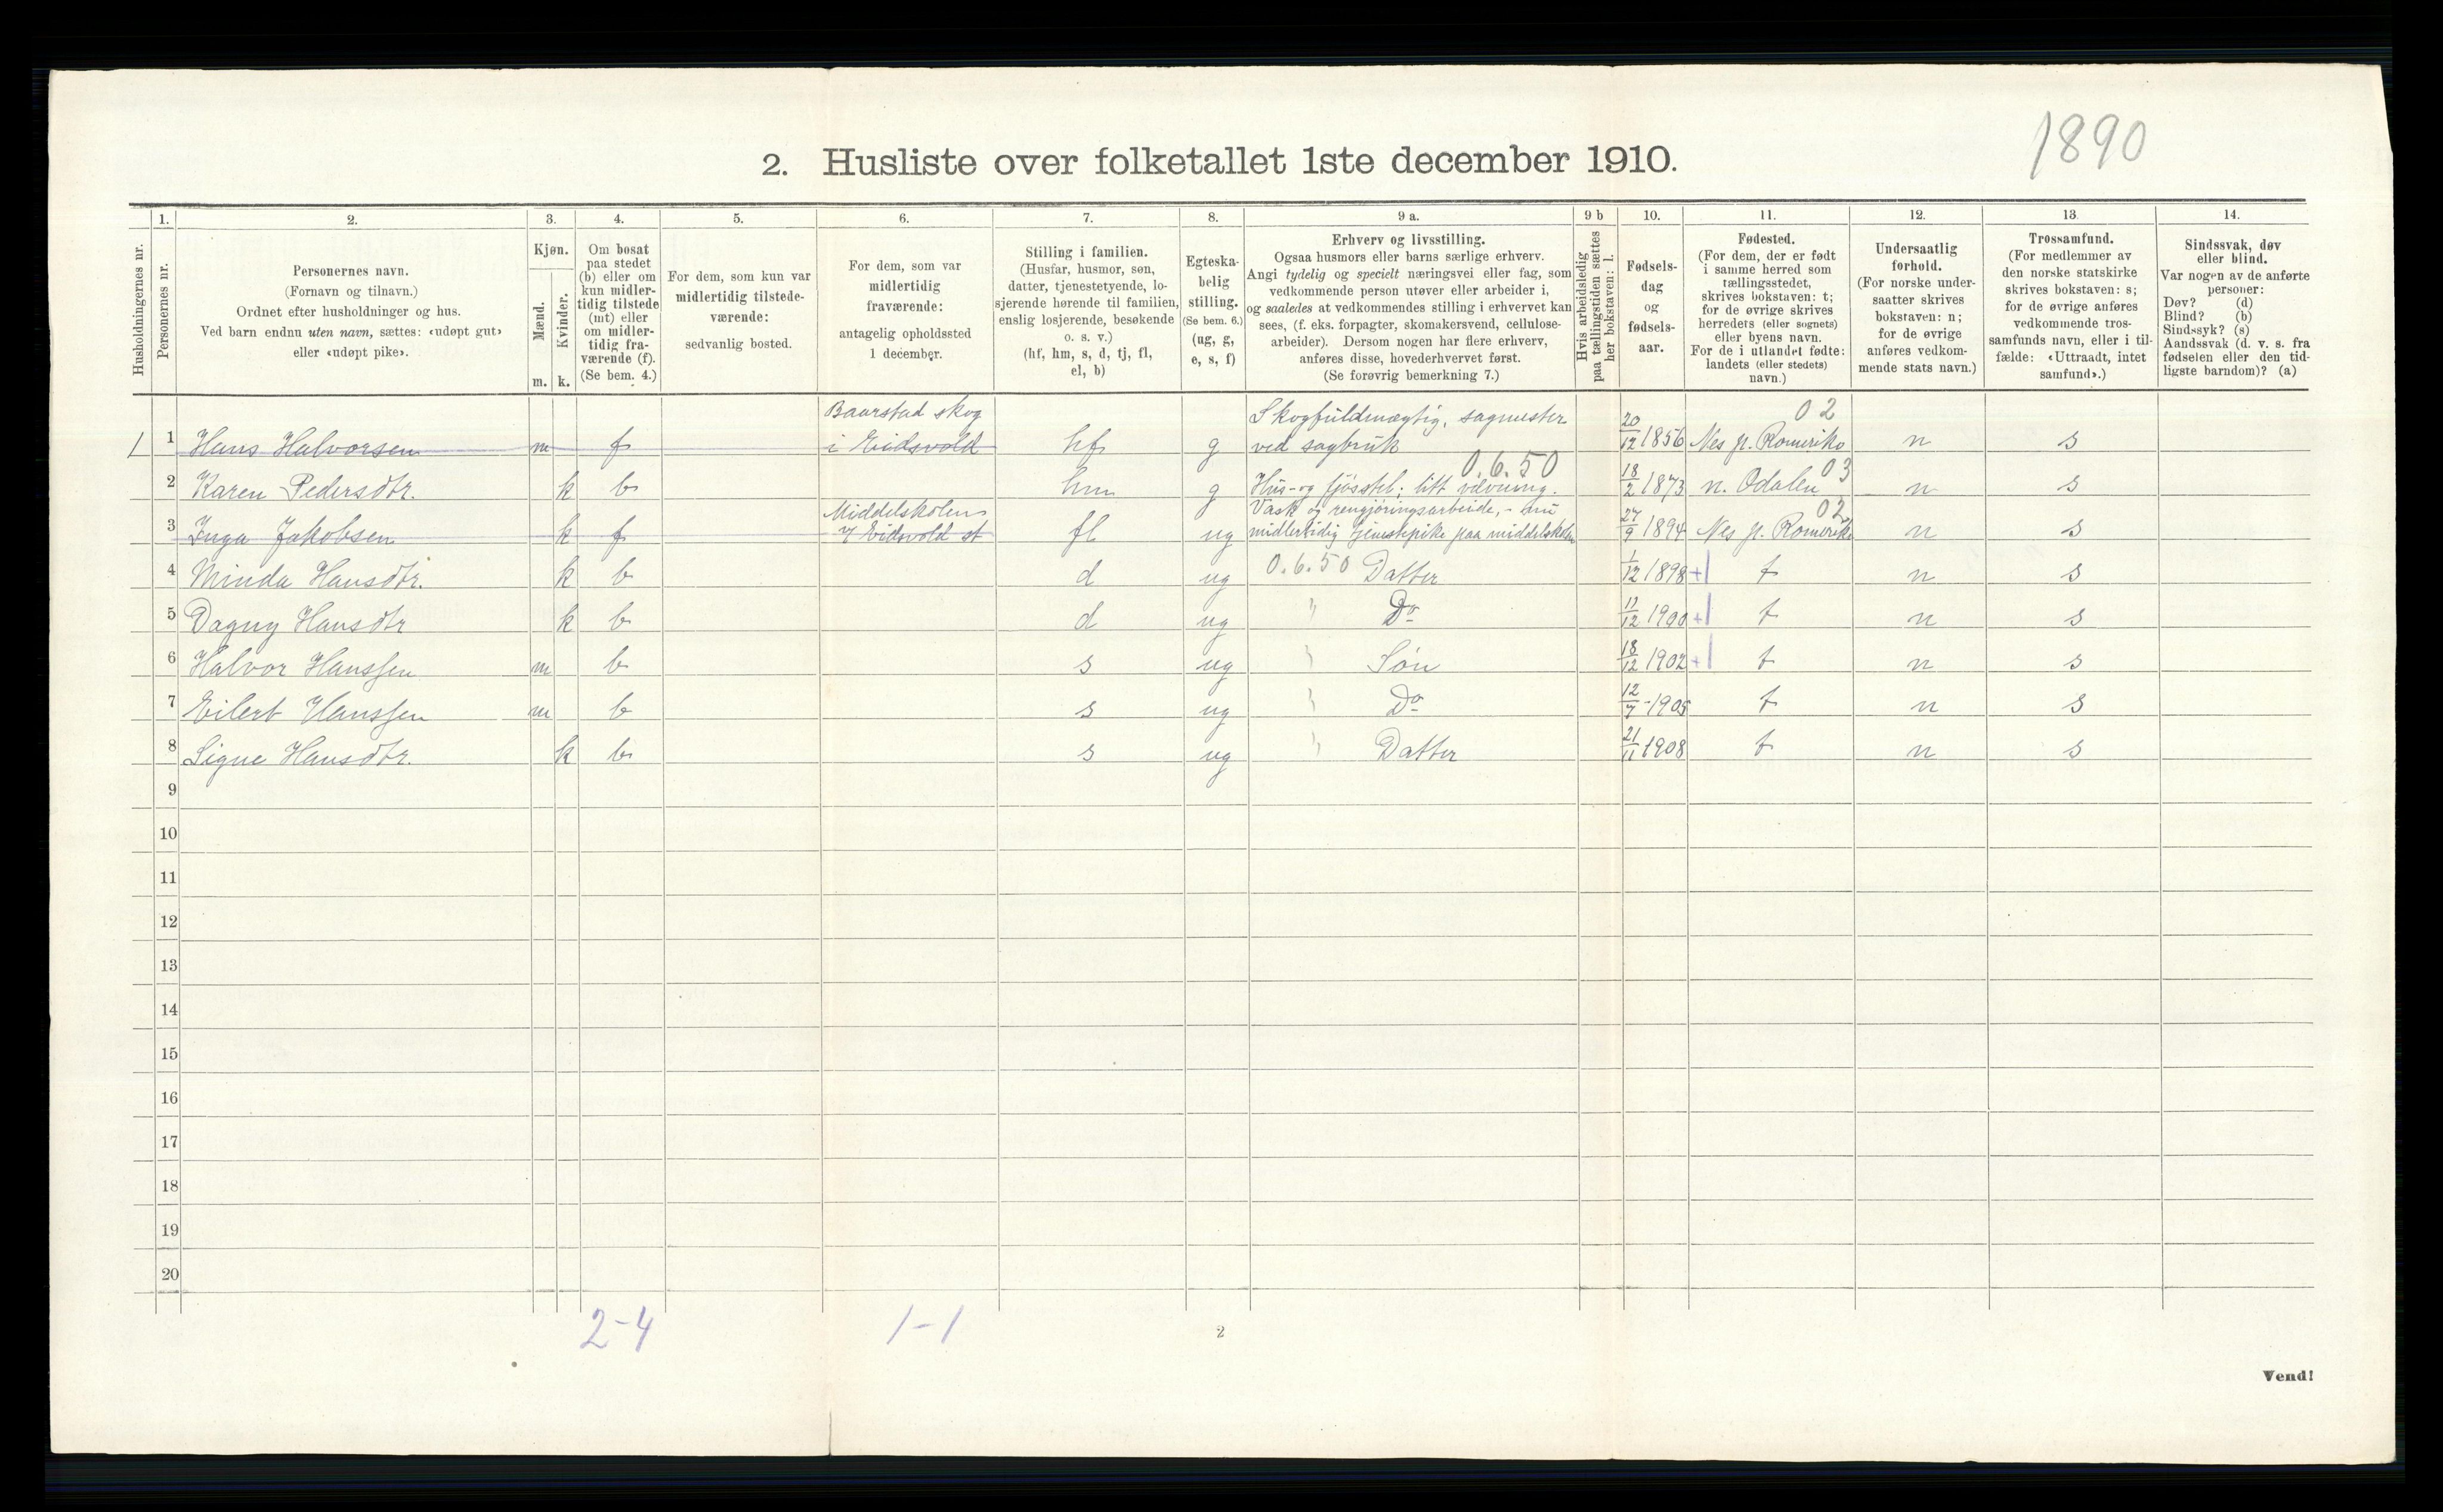 1890
2. Husliste over folketallet 1ste december 1910.
Husholdningernes nr.
1.
Personernes nr.
2.
Personernes navn.
(Fornavn og tilnavn.)
Ordnet efter husholdninger og hus.
Ved barn endnu uten navn, sættes: «udøpt gut»
eller «udøpt pike».
3.
Kjøn.
Mænd.
Kvinder.
m. k.
4.
Om bosat
paa stedet
(b) eller om
kun midler-
tidig tilstede
(mt) eller
om midler-
tidig fra-
værende (f).
(Se bem. 4.)
5.
For dem, som kun var
midlertidig tilstede-
værende:
sedvanlig bosted.
6.
For dem, som var
midlertidig
fraværende:
antagelig opholdssted
1 december.
7.
Stilling i familien.
(Husfar, husmor, søn,
datter, tjenestetyende, lo-
sjerende hørende til familien,
enslig losjerende, besøkende
o. s. v.)
(hf, hm, s, d, tj, fl,
el, b)
8.
Egteska-
belig
stilling.
(Se bem. 6.)
(ug, g,
e, s, f)
9 a.
Erhverv og livsstilling.
Ogsaa husmors eller barns særlige erhverv.
Angi tydelig og specielt næringsvei eller fag, som
vedkommende person utøver eller arbeider i,
og saaledes at vedkommendes stilling i erhvervet kan
sees, (f. eks. forpagter, skomakersvend, cellulose-
arbeider). Dersom nogen har flere erhverv,
anføres disse, hovederhvervet først.
(Se forøvrig bemerkning 7.)
9 b
Hvis arbeidsledig
paa tællingstiden sættes
her bokstaven: l.
10.
Fødsels-
dag
og
fødsels-
aar.
11.
Fødested.
(For dem, der er født
i samme herred som
tællingsstedet,
skrives bokstaven: t;
for de øvrige skrives
herredets (eller sognets)
eller byens navn.
For de i utlandet fødte:
landets (eller stedets)
navn.)
12.
Undersaatlig
forhold.
(For norske under-
saatter skrives
bokstaven: n;
for de øvrige
anføres vedkom-
mende stats navn.)
13.
Trossamfund.
(For medlemmer av
den norske statskirke
skrives bokstaven: s;
for de øvrige anføres
vedkommende tros-
samfunds navn, eller i til-
fælde: «Uttraadt, intet
samfund».)
14.
Sindssvak, døv
eller blind.
Var nogen av de anførte
personer:
Døv? (d)
Blind? (b)
Sindssyk? (s)
Aandssvak (d. v. s. fra
fødselen eller den tid-
ligste barndom)? (a)
Baarstad skog Skogfuldmægtig, sagmester 02
1 1 Hans Halvorsen m f i Eidsvold hf g ved sagbruk 20/12 1856 Nes p. Romerike n s
0.6.50 03
2 Karen Pedersdtr. k b hm g Hus- og fjösstel; litt vævning. 18/2 1873 n. Odalen n s
Middelskolen Vask og rengjøringsarbeide, - nu 02
3 Inga Jakobsen k f v/ Eidsvold st fl ug midlertidig tjenestepike paa middelskolen 27/9 1894 Nes p. Romerike n s
4 Minda Hansdtr. k b d ug 0.6.50 Datter 1/12 1898 +1 t n s
5 Dagny Hansdtr k b d ug " Do 11/12 1900 +1 t n s
6 Halvor Hanssen m b s ug " Søn 18/12 1902 +1 t n s
7 Eilert Hanssen m b s ug " Do 12/7 1905 t n s
8 Signe Hansdtr. k b s ug " Datter 21/11 1908 t n s
9
10
11
12
13
14
15
16
17
18
19
20
2-4 1-1
2
Vend!